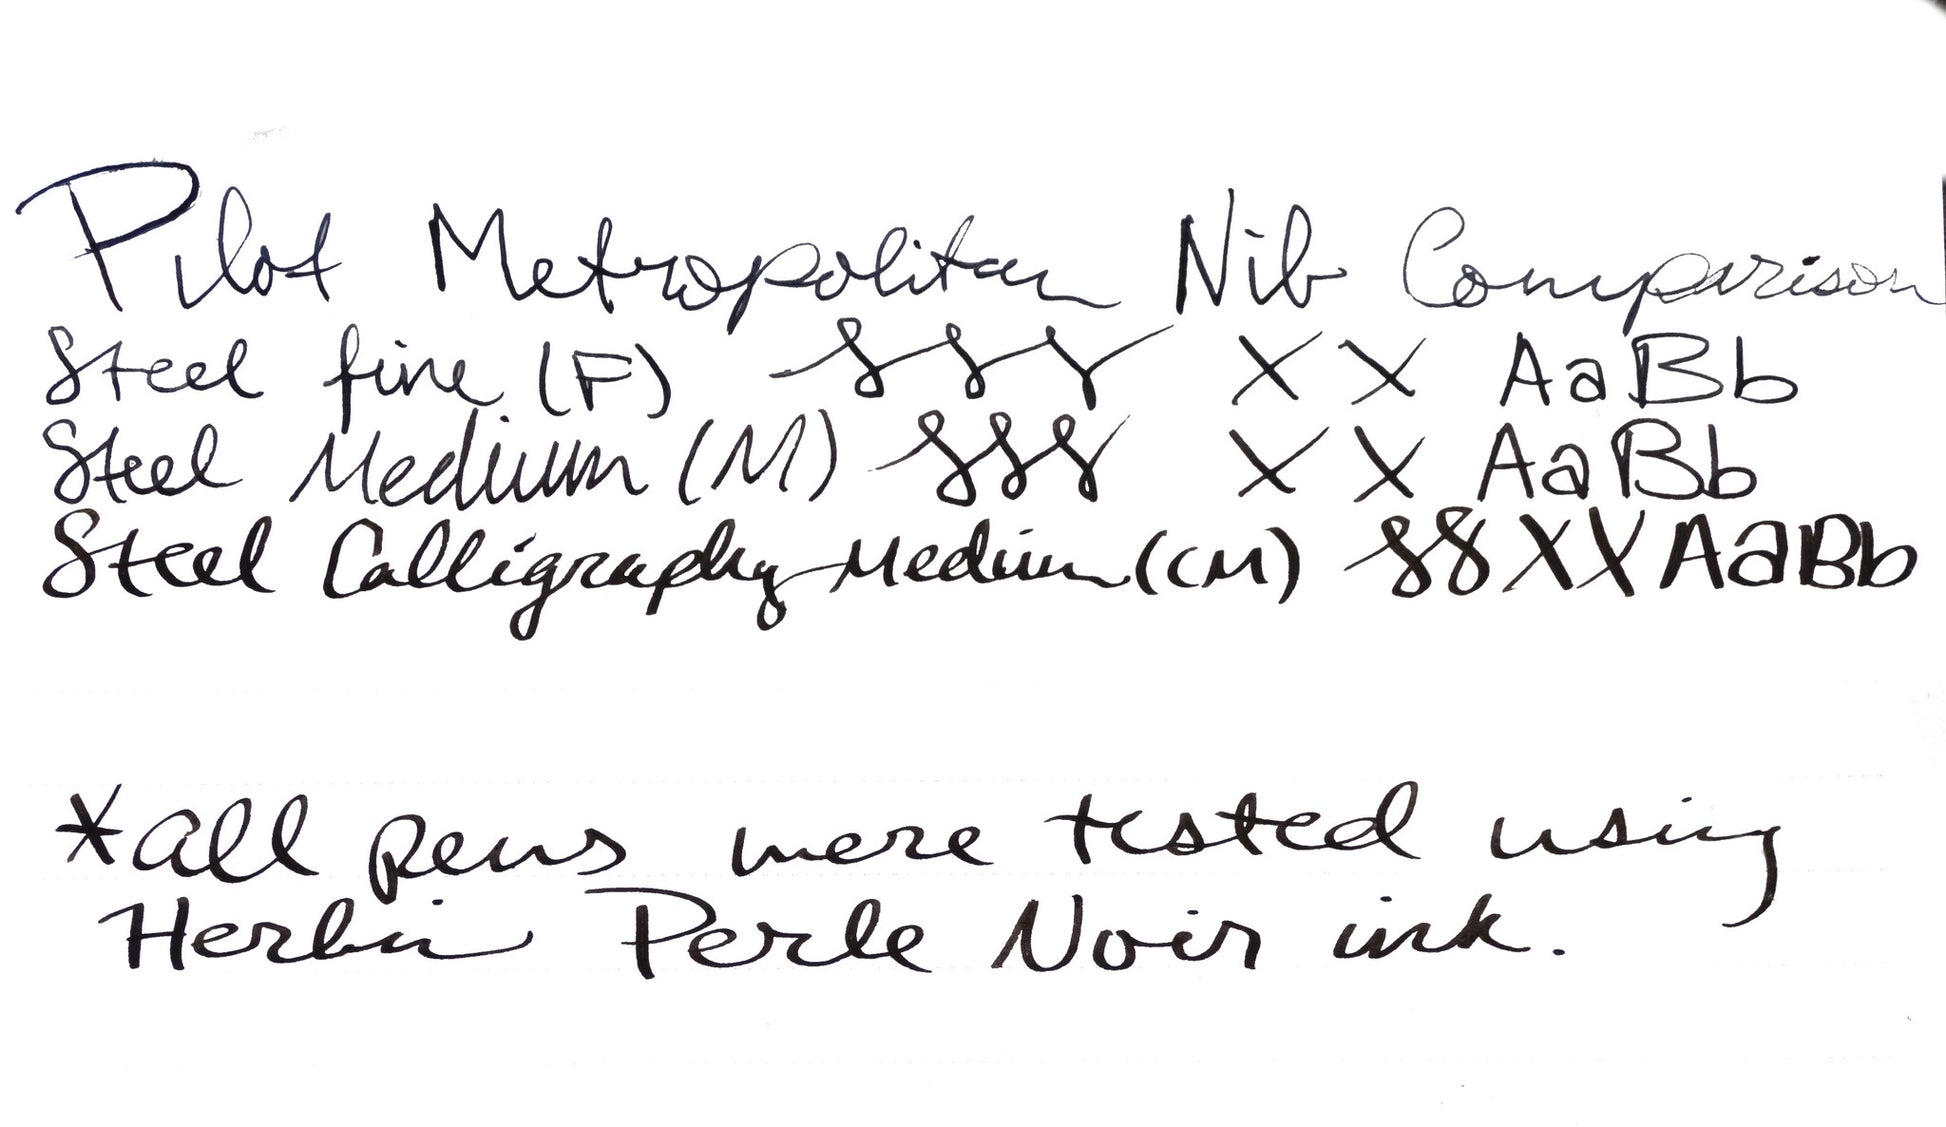 Pilot Metropolitan Nib Comparison
Steel fine (F) X X AaBb
Steel Medium (M) X X AaBb
Steel Calligraphy Medium (CM) XX AaBb
*all pens were tested using
Herbin Perle Noir ink.